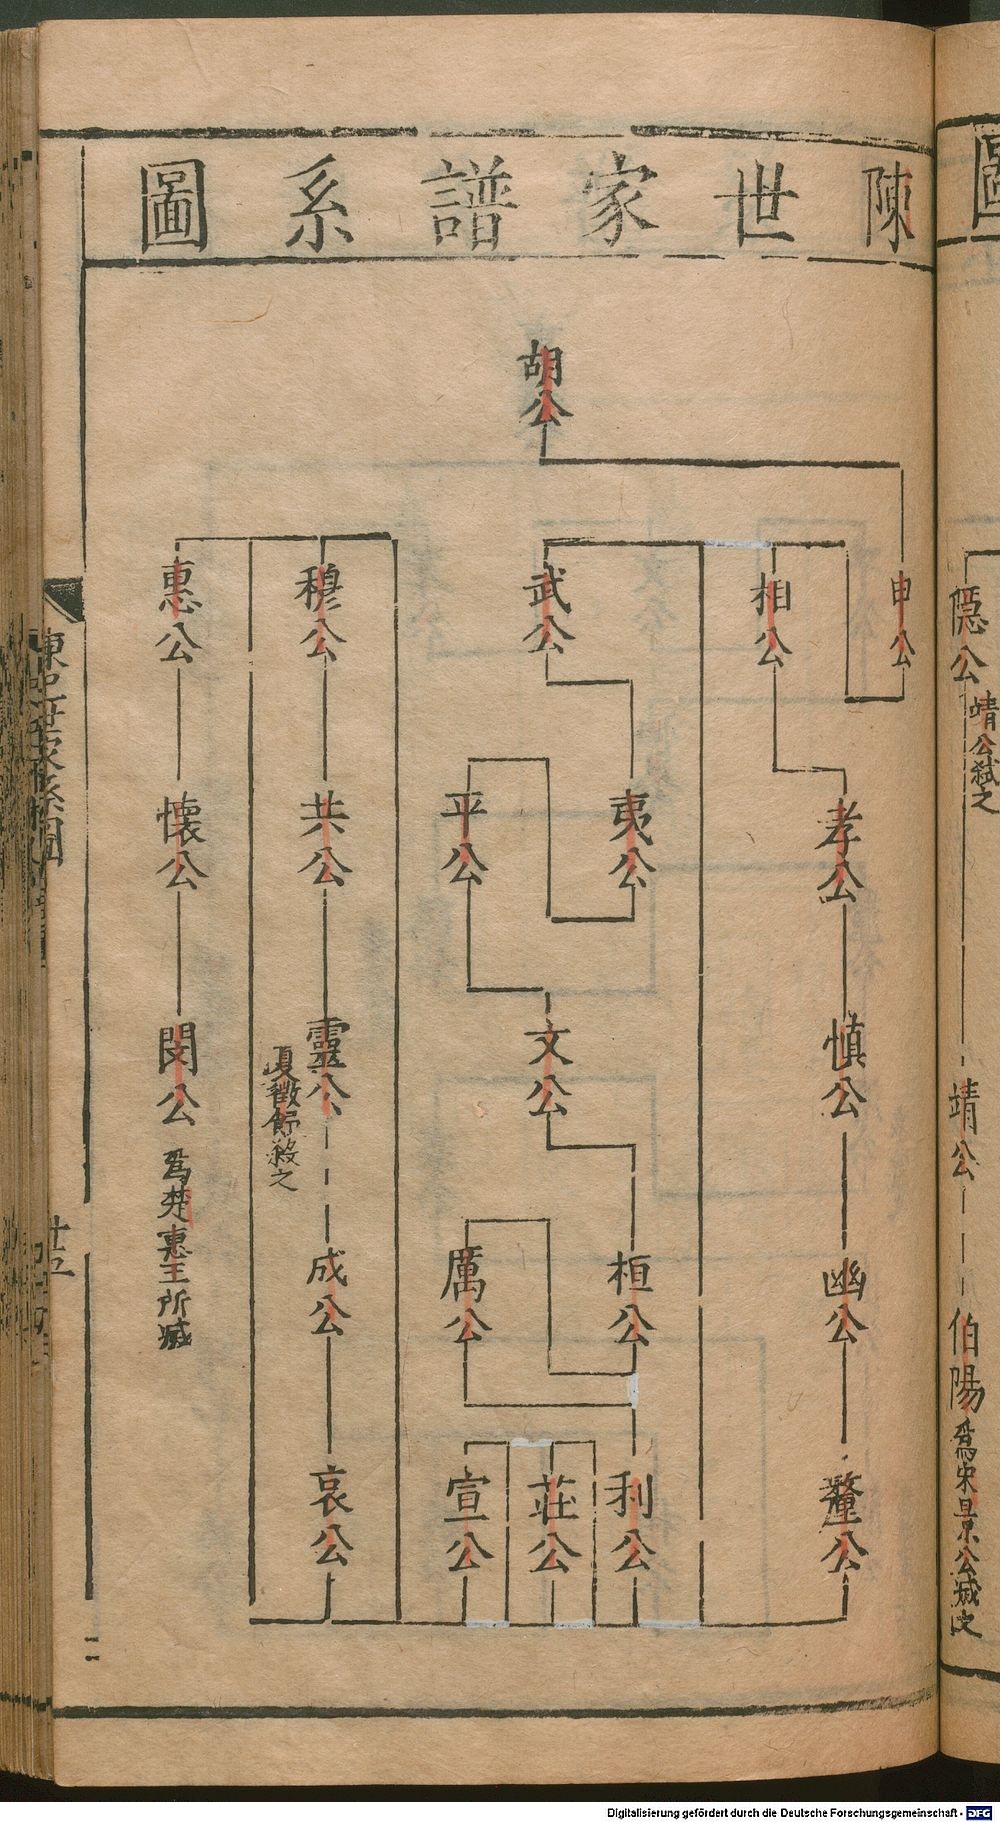 陳世家譜系圖
胡公
申公
相公
孝公
慎公
幽公
釐公
武公
夷公
平公
文公
桓公
厲公
利公
莊公
宣公
穆公
共公
靈公
夏徵舒殺之
成公
哀公
惠公
懷公
閔公
爲楚惠王所滅
隱公
靖公弑之
靖公
伯陽
爲宋景公滅之
圖
廿五
Digitalisierung gefördert durch die Deutsche Forschungsgemeinschaft - DFG